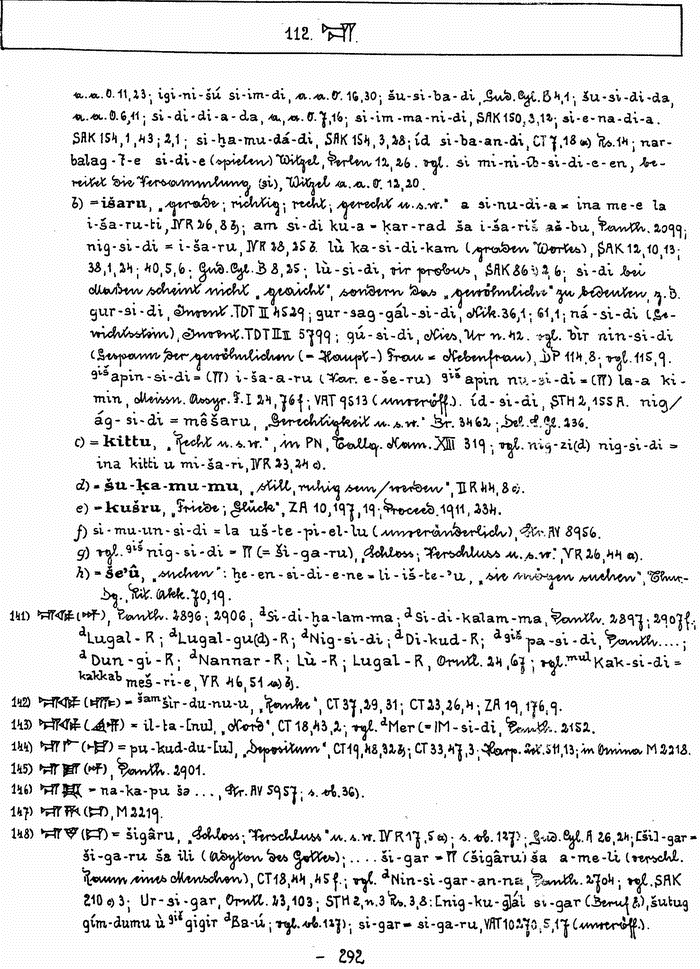 112. 𒋛.
a.a.O. 11,23; igi-ni-šú si-im-di, a.a.O. 16,30; šu-si-ba-di, Gud.Cyl. B 4,1; šu-si-di-da,
a.a.O. 6,11; si-di-di-a-da, a.a.O. 7,16; si-im-ma-ni-di, SAK 150,3,12; si-e-na-di-a.
SAK 154,1,43; 2,1; si-ḫa-mu-dá-di, SAK 154,3,28; íd si-ba-an-di, CT 7,18 a) Rs. 14; nar-
balag-7-e si-di-e (spielen) Witzel, Perlen 12,26. vgl. si mi-ni-íb-si-di-e-en, be-
reitet die Versammlung (si), Witzel a.a.O. 12,20.
b) = išaru, „gerade; richtig; recht; gerecht u.s.w." a si-nu-di-a = ina me-e la
i-ša-ru-ti, IVR 26,8 b; am si-di ku-a = ḳar-rad ša i-ša-riš aš-bu, Panth. 2099;
nig-si-di = i-ša-ru, IVR 28,25 b. lù ka-si-di-kam (graden Wortes), SAK 12,10,13;
38,1,24; 40,5,6; Gud.Cyl. B 8,25; lù-si-di, vir probus, SAK 86 2,6; si-di bei
Maßen scheint nicht „geaicht", sondern das „gewöhnliche" zu bedeuten, z.B.
gur-si-di, Invent. TDT II 4529; gur-sag-gál-si-di, Nik. 36,1; 61,1; ná-si-di (Ge-
wichtsstein), Invent. TDT II 5799; gú-si-di, Nies, Ur n. 42. vgl. bìr nin-si-di
(Gespann der gewöhnlichen (= Haupt-) Frau = Nebenfrau), DP 114,8; vgl. 115,9.
giš apin-si-di = (〃) i-ša-a-ru (Var. e-še-ru) giš apin nu-si-di = (〃) la-a ki-
min, Meissn. Assyr. F. I 24,76 f; VAT 9513 (unveröff.). íd-si-di, STH 2,155 A. nig/
ág-si-di = mêšaru, „Gerechtigkeit u.s.w." Br. 3462; Del. S. Gl. 236.
c) = kittu, „Recht u.s.w.", in PN, Tallq. Nam. XIII 319; vgl. nig-zi(d) nig-si-di =
ina kitti u mi-ša-ri, IVR 23,24 c).
d) = šu-ḳa-mu-mu, „still, ruhig sein/werden", IIR 44,8 c).
e) = kušru, „Friede; Glück", ZA 10,197,19; Proceed. 1911, 234.
f) si-mu-un-si-di = la uš-te-pi-el-lu (unveränderlich), Str. AV 8956.
g) vgl. giš nig-si-di = 〃 (= ši-ga-ru), „Schloss; Verschluss u.s.w.", VR 26,44 a).
h) = še'û, „suchen": ḫe-en-si-di-e-ne = li-iš-te-'u, „sie mögen suchen", Thur-
Dg., Rit. Akk. 70,19.
141) Panth. 2896; 2906, ᵈSi-di-ḫa-lam-ma; ᵈSi-di-kalam-ma, Panth. 2897; 2907 f;
ᵈLugal-R; ᵈLugal-gu(d)-R; ᵈNig-si-di; ᵈDi-kud-R; ᵈ giš pa-si-di, Panth....;
ᵈDun-gi-R; ᵈNannar-R; Lù-R; Lugal-R, Orntl. 24,67; vgl. mul Kak-si-di =
kakkab meš-ri-e, VR 46,51 a) b).
142) = šam šìr-du-nu-u, „Ranke", CT 37,29,31; CT 23,26,4; ZA 19,176,9.
143) = il-ta-[nu], „Nord", CT 18,43,2; vgl. ᵈMer (= IM-si-di, Panth. 2152.
144) = pu-kud-du-[u], „Depositum", CT 19,48,32 b; CT 33,47,3; Harp. Let. 511,13; in Omina M 2218.
145) Panth. 2901.
146) = na-ka-pu ša ..., Str. AV 5957; s. ob. 36).
147) M 2219.
148) = šigâru, „Schloss; Verschluss" u.s.w. IVR 17,5 a); s. ob. 127); Gud.Cyl. A 26,24; [ši]-gar =
ši-ga-ru ša ili (Adyton des Gottes); .... ši-gar = 〃 (šigâru) ša a-me-li (verschl.
Raum eines Menschen), CT 18,44,45 f.; vgl. ᵈNin-si-gar-an-na, Panth. 2704; vgl. SAK
210 e) 3; Ur-si-gar, Orntl. 23,103; STH 2,n.3 Rs. 3,8: [nig-ku-g]ál si-gar (Beruf?), šutug
gím-dumu ù giš gigir ᵈBa-ú; vgl. ob. 127); si-gar = si-ga-ru, VAT 10270, 5,17 (unveröff.).
- 292